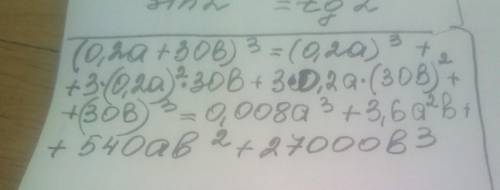 = tg 2
(0,2a + 30в)³ = (0,2a)³ +
+ 3·(0,2a)²·30в + 3·0,2a·(30в)² +
+ (30в)³ = 0,008a³ + 3,6a²в +
+ 540aв² + 27000в³